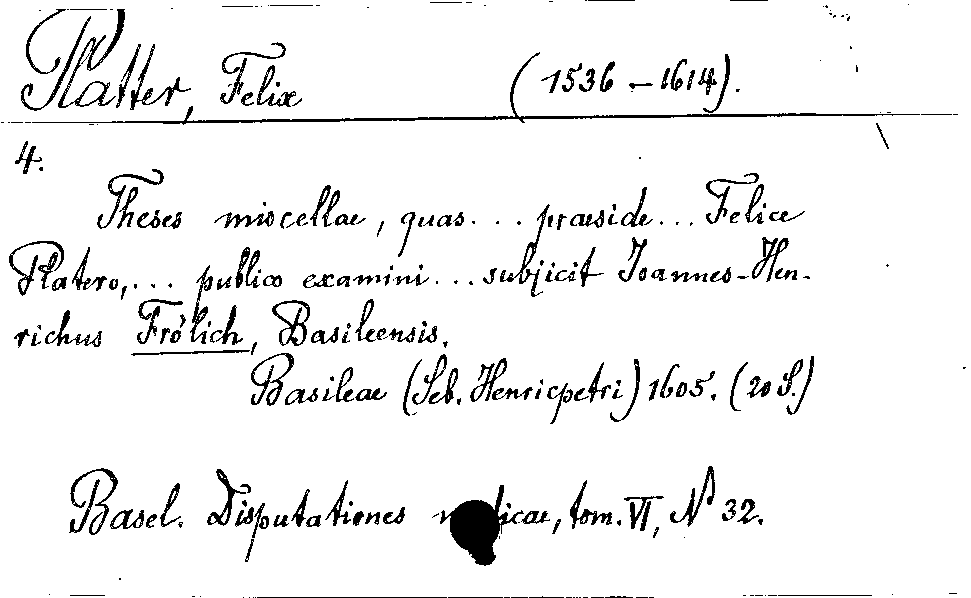 Platter, Felix (1536 – 1614).
4.
Theses miscellae, quas... praeside... Felice
Platero,... publico examini... subjicit Joannes-Hen-
richus Frölich, Basileensis.
Basileae (Seb. Henricpetri) 1605. (20 S.)
Basel. Disputationes tom. VI, N° 32.